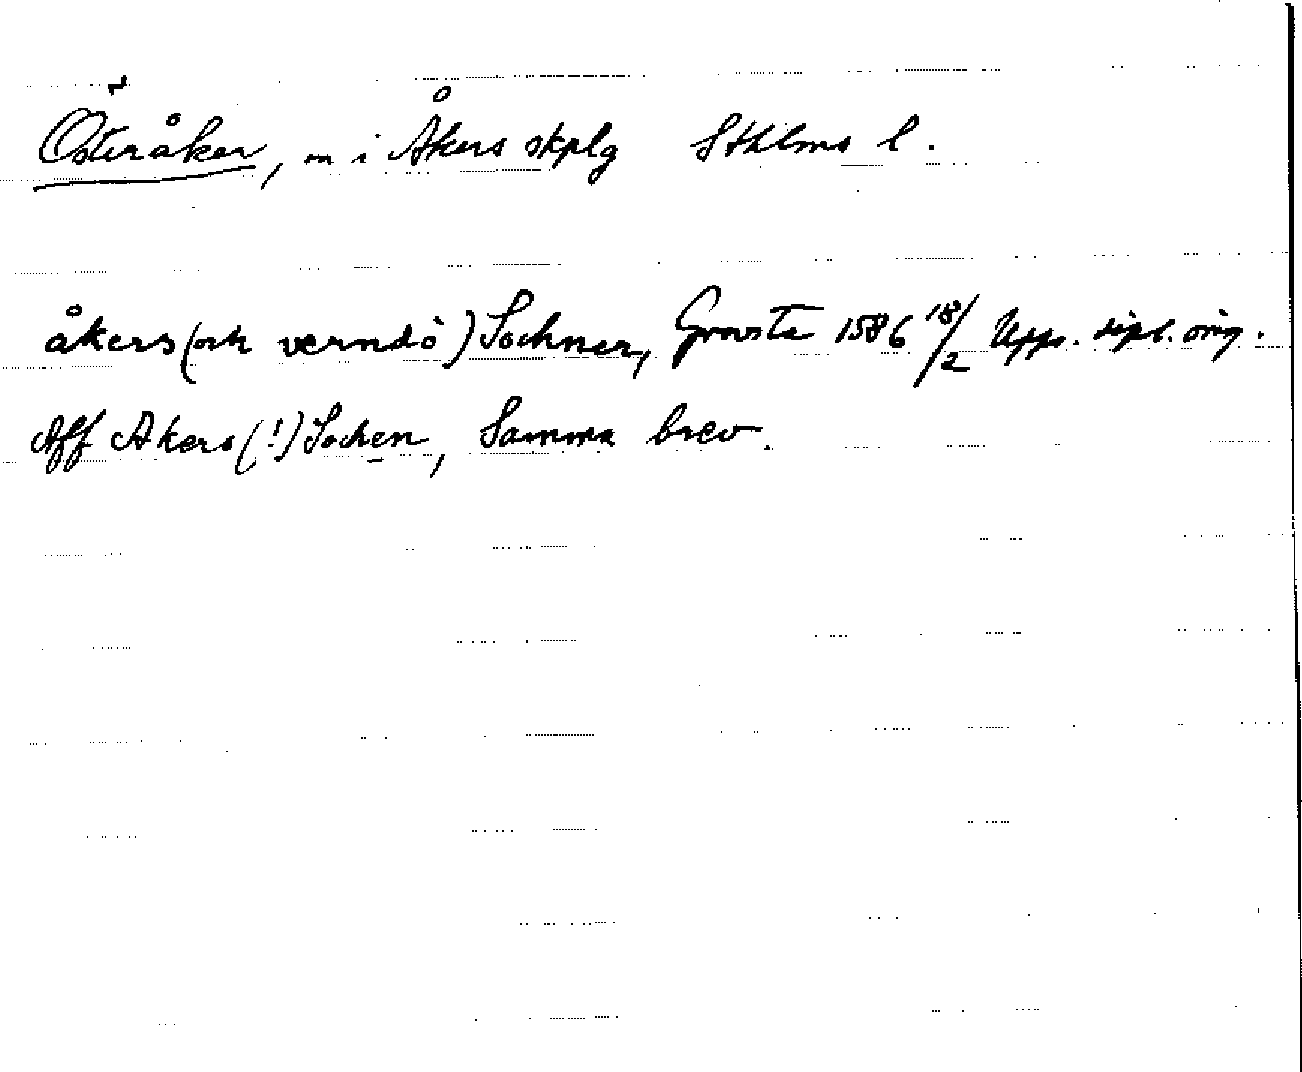 Österåker, sn i Åkers skplg Sthlms l.
åkers (och verndö) Sochner, Gravsta 1586 18/2 Upps. dipl. orig.
Aff Akers (!) Sochen, Samma brev.